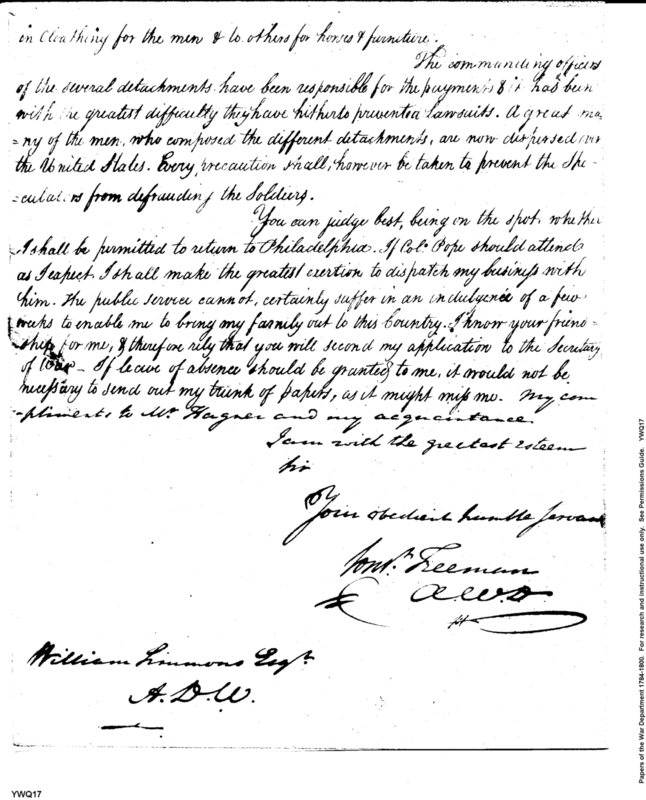 in Cloathing for the men & to others for horses & furniture.
The commanding officers
of the several detachments have been responsible for the payments & it has been
with the greatest difficulty they have hitherto prevented Lawsuits. A great ma-
=ny of the men, who composed the different detachments, are now dispersed over
the United States. Every precaution shall, however be taken to prevent the Spe-
=culators from defrauding the Soldiers.
You can judge best, being on the spot, whether
I shall be permitted to return to Philadelphia. If Col. Pope should attend
as I expect I shall make the greatest exertion to dispatch my business with
him. The public service cannot, certainly suffer in an indulgence of a few
weeks to enable me to bring my family out to this Country. I know your friend-
ship for me, & therefore rely that you will second my application to the Secretary
of War - If leave of absence should be granted to me, it would not be
necessary to send out my trunk of papers, as it might miss me. My com
-pliments to Mr. Hagner and my acquaintance.
I am with the greatest Esteem
Sir
Your obedient humble Servant
Const. Freeman
A.W.D.
William Simmons Esqr.
A.D.W.
YWQ17
Papers of the War Department 1784-1800. For research and instructional use only. See Permissions Guide. YWQ17